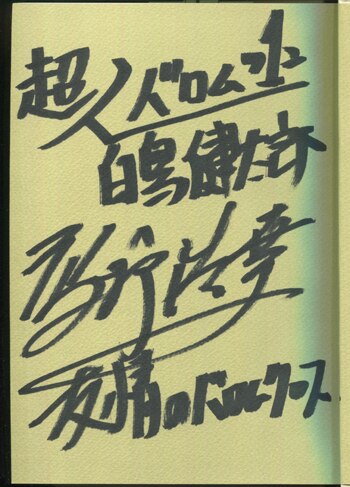 超人バロム・1
白鳥健太郎
高野浩幸
友情のバロムクロス